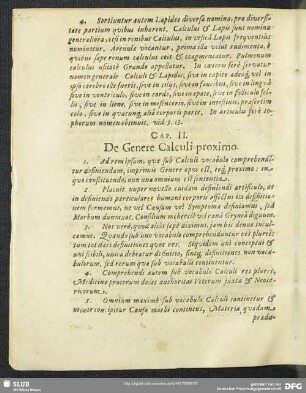 4. Sortiuntur autem Lapides diversa nomina, pro diversi-
tate partium quibus inhærent. Calculus & Lapis sunt nomina
generaliora, etsi in renibus Calculus, in vesica Lapis frequentius
nominetur. Arenulæ vocantur, prima illa velut rudimenta, è
quibus sæpe renum calculus coit & coagmentatur. Pulmonum
calculus usitatè Grando appellatur. In cæteris ferè servatur
nomen generale Calculi & Lapidis, sive in capite adeoq; vel in
ipso cerebro ille fuerit, sive in
sive in ventriculo, sive in corde, sive in epate, sive in folliculo fellis
, sive in liene, sive in mesenterio, sive in intestinis, præsertim
colo, sive in quacunq; alia corporis parte. In articulis ferè
tophorum nomen obtinuit.
CAP. II.
De Genere Calculi proximo.
1. Ad rem ipsam, quæ sub Calculi vocabulo comprehendi-
tur definiendam, inprimis Genere opus est, eoq; proximo: in
quo constituendo, non una omnium est sententia.
2. Placuit nuper novello cuidam definiendi artifici, ut
in definiendis particularis humani corporis affectibus
nem firmemus, ne vel Causam vel Symptoma definiamus, sed
Morbum duntaxat. Consilium meherculè vel ranâ Gryneâ dignum.
3. Nos verò, quod aliàs sæpè diximus, jam hic denuò incul-
camus. Quando sub uno vocabulo comprehenduntur res plures,
tum tot dari definitiones quot res. Siquidem uni conceptui &
uni sibili, unica debeatur definitio, sitq; definitiones non voca-
bulorum, sed rerum quæ sub vocabulis continentur.
4. Comprehendi autem sub vocabulo Calculi res plures,
Medicinæ procerum docet authoritas Veterum juxta & Neote-
ricorum.
5. Omnium maximè sub vocabulo Calculi continetur &
Causa morbi continens, Materia quædam